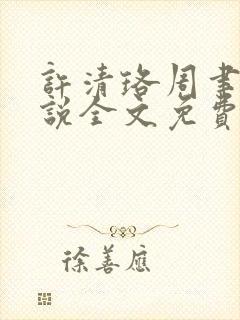 許清珞周書
說全文免費
徐善應